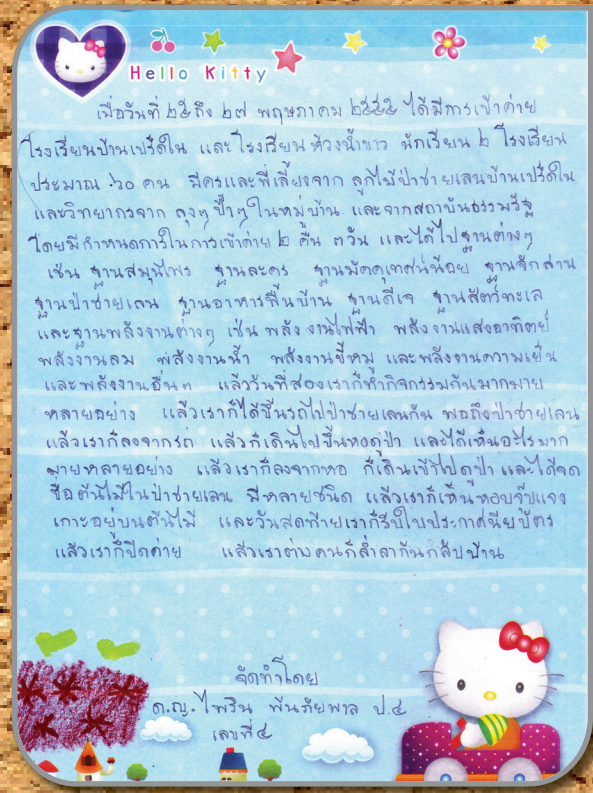 Hello Kitty
เมื่อวันที่ ๒๕ ถึง ๒๗ พฤษภาคม ๒๕๕๕ ได้มีการเข้าค่าย
โรงเรียนบ้านเปร็ดใน และโรงเรียนห้วงน้ำขาว นักเรียน ๒ โรงเรียน
ประมาณ ๖๐ คน มีครูและพี่เลี้ยงจาก ลูกไม้ป่าชายเลนบ้านเปร็ดใน
และวิทยากรจาก ลุงๆ ป้าๆ ในหมู่บ้าน และจากสถาบันธรรมรัฐ
โดยมีกำหนดการในการเข้าค่าย ๒ คืน ๓ วัน และได้ไปฐานต่างๆ
เช่น ฐานสมุนไพร ฐานละคร ฐานมัคคุเทศน์น้อย ฐานจักสาน
ฐานป่าชายเลน ฐานอาหารพื้นบ้าน ฐานดีเจ ฐานสัตว์ทะเล
และฐานพลังงานต่างๆ เช่น พลังงานไฟฟ้า พลังงานแสงอาทิตย์
พลังงานลม พลังงานน้ำ พลังงานขี้หมู และพลังงานความเย็น
และพลังงานอื่นๆ แล้ววันที่สองเราก็ทำกิจกรรมกันมากมาย
หลายอย่าง แล้วเราก็ได้ขึ้นรถไปป่าชายเลนกัน พอถึงป่าชายเลน
แล้วเราก็ลงจากรถ แล้วก็เดินไปขึ้นหอดูป่า และได้เห็นอะไรมาก
มายหลายอย่าง แล้วเราก็ลงจากหอ ก็เดินเข้าไปดูป่า และได้จด
ชื่อต้นไม้ในป่าชายเลน มีหลายชนิด แล้วเราก็เห็นหอยจุ๊บแจง
เกาะอยู่บนต้นไม้ และวันสุดท้ายเราก็รับใบประกาศนียบัตร
แล้วเราก็ปิดค่าย แล้วเราต่างคนก็ล่ำลากันกลับบ้าน
จัดทำโดย
ด.ญ. ไพริน พ้นภัยพาล ป.๔
เลขที่ ๔